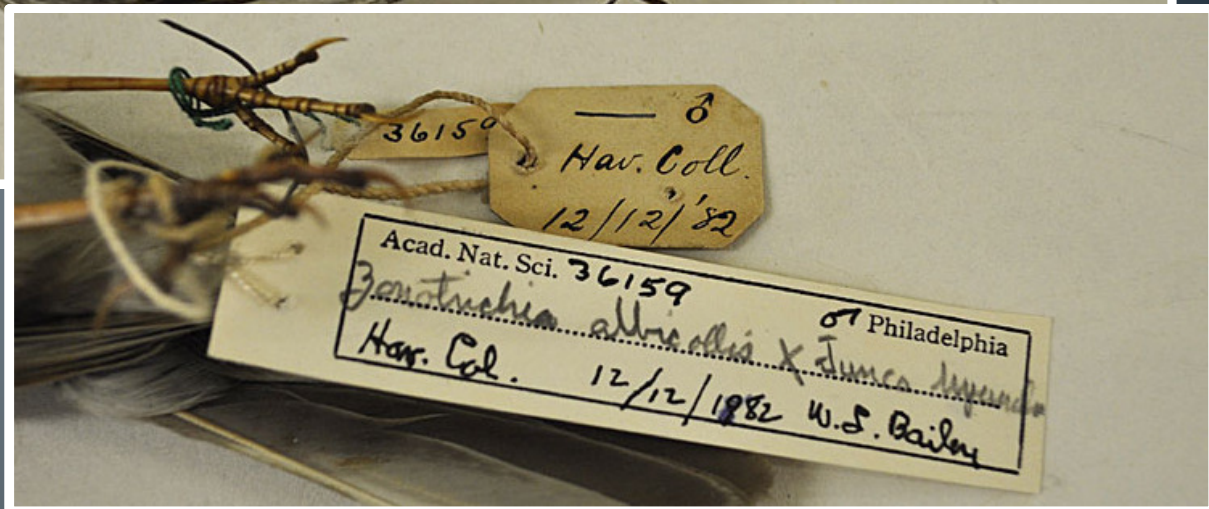 36159
— ♂
Hav. Coll.
12/12/'82
Acad. Nat. Sci. 36159 ♂ Philadelphia
Zonotrichia albicollis X Junco
Hav. Col. 12/12/1982 W.L. Bailey